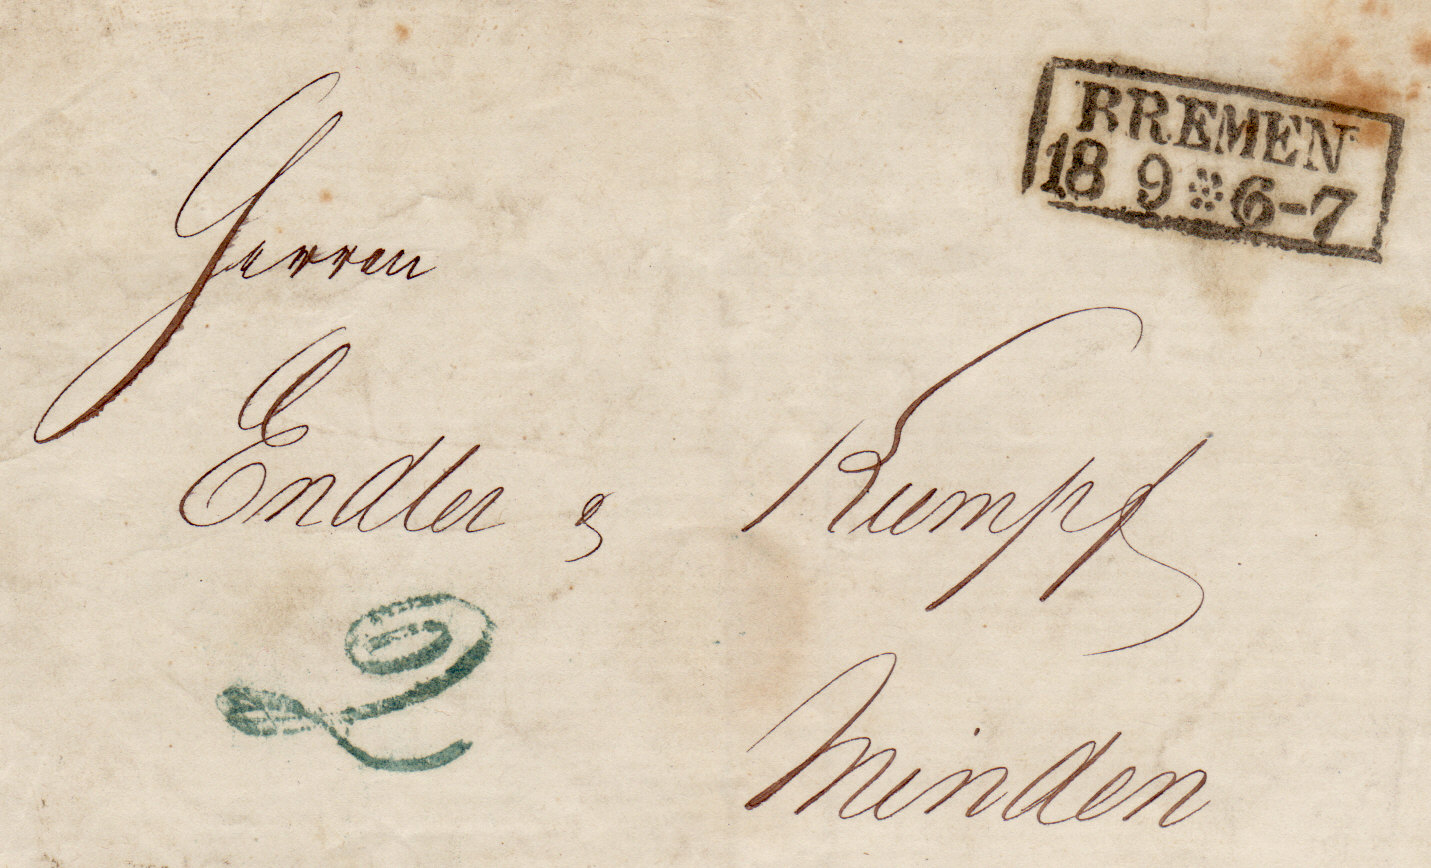 BREMEN
18 9 * 6-7
Herren
Endler & Kumpf
2
Minden